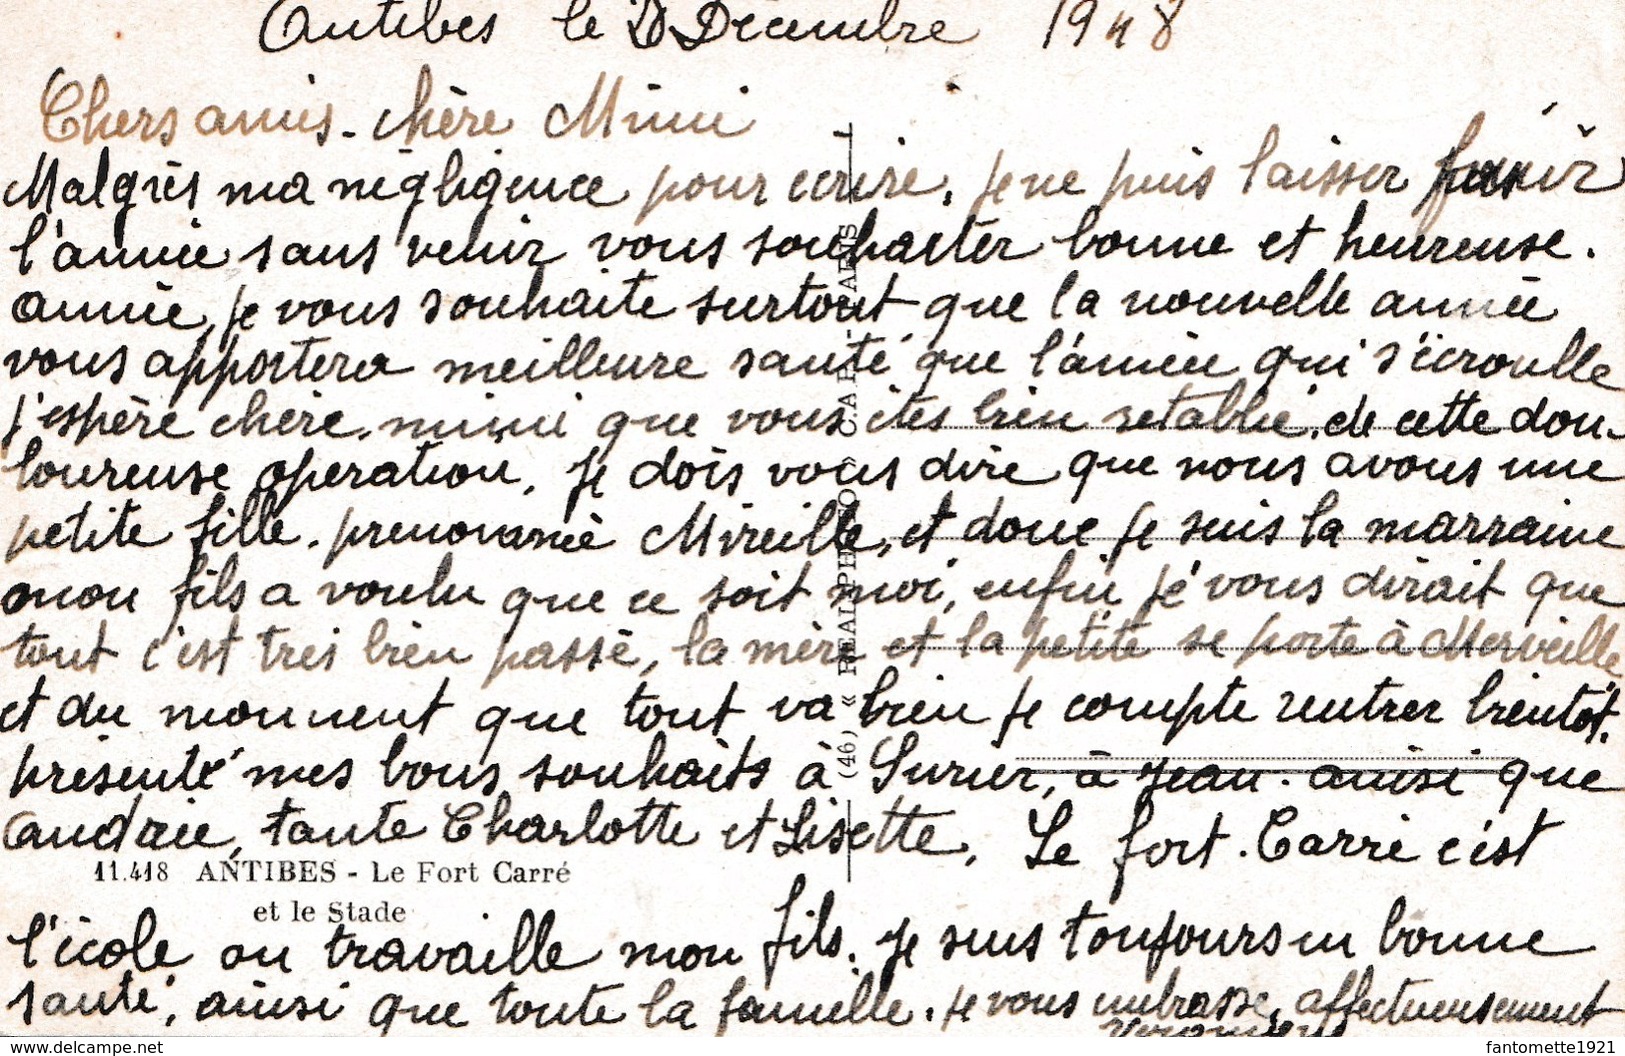 Antibes le Décembre 1948
Chers amis. chère Mimi
Malgrés ma négligence pour écrire, je ne puis laisser finir
l'année sans venir vous souhaiter bonne et heureuse.
année, je vous souhaite surtout que la nouvelle année
vous apportera meilleure santé que l'année qui s'écroulle
j'espère chère mimi que vous êtes bien retablie, de cette dou-
loureuse operation, je dois vous dire que nous avons une
petite fille. prenommée Mireille, et donc je suis la marraine
mon fils a voulu que ce soit moi, enfin je vous dirait que
tout c'est tres bien passé, la mère et la petite se porte à Merveille
et du moment que tout va bien je compte rentrer bientôt.
présente mes bons souhaits à Surier, à Jean. ainsi que
Andrée, tante Charlotte et Lisette. Le fort. Carré c'est
11.418 ANTIBES - Le Fort Carré
et le Stade
l'école ou travaille mon fils. Je suis toujours en bonne
santé, ainsi que toute la famille. je vous embrasse, affectueusement
(46) « REAL-PHOTO » C.A.P. - PARIS
delcampe.net
fantomette1921